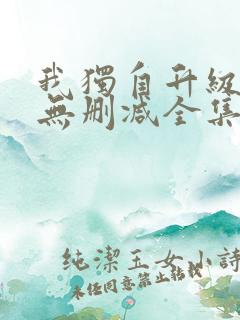 我獨自升級
無刪減全集
純潔玉女小詩
未经同意禁止転載